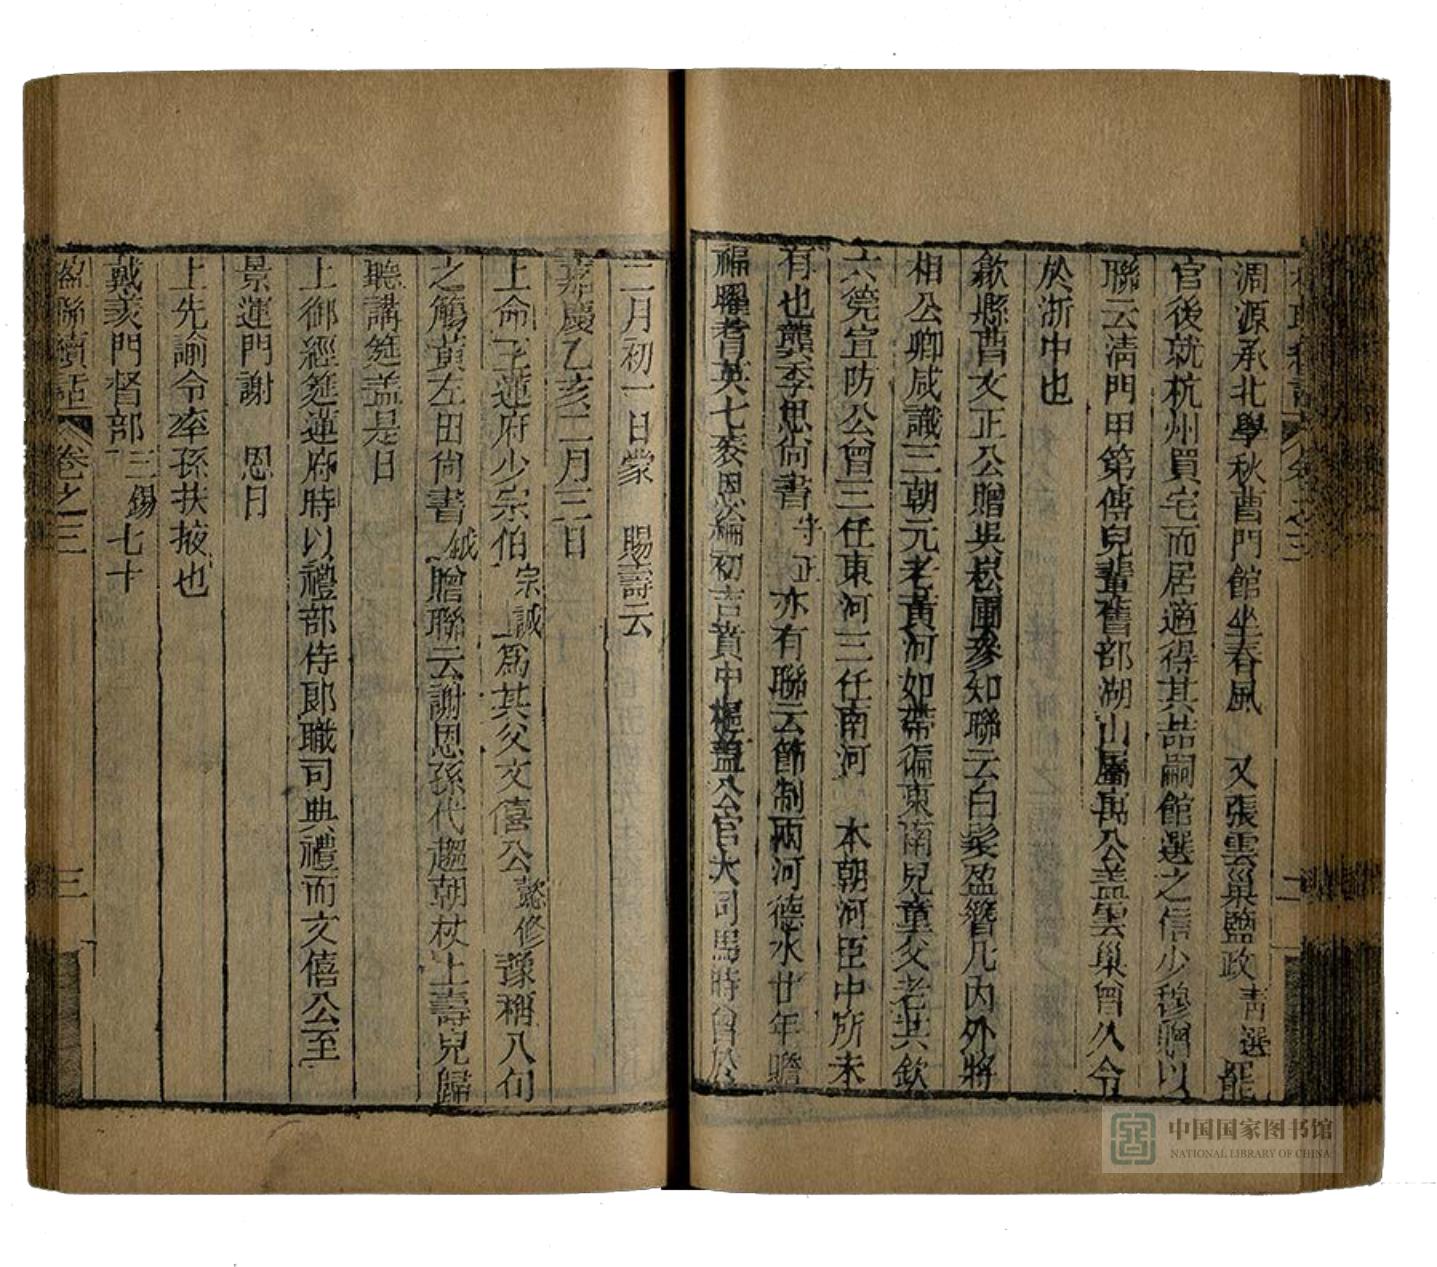 澗源承北學秋曹門館坐春風　又張雲巢鹽政青選罷
官後就杭州買宅而居適得其喆嗣館選之信少穆贈以
聯云清門甲第傳兒輩舊部湖山屬寓公蓋雲巢曾久令
於浙中也
歙縣曹文正公贈吳崧圃參知聯云白髮盈簪凡內外將
相公卿咸識三朝元老黃河如帶徧東南兒童父老共欽
六筦宣防公曾三任東河三任南河　本朝河臣中所未
有也龔季思尚書守正亦有聯云節制兩河德水廿年瞻
福曜耆英七袠恩綸初吉賁中樞蓋公官大司馬時曾於
二月初一日蒙　賜壽云
嘉慶乙亥二月三日
上命王蓮府少宗伯宗誠爲其父文僖公懿修豫稱八旬
之觴黃左田尚書鉞贈聯云謝恩孫代趨朝杖上壽兒歸
聽講筵蓋是日
上御經筵蓮府時以禮部侍郎職司典禮而文僖公至
景運門謝　恩日
上先諭令率孫扶掖也
戴羨門督部三錫七十
楹聯續話　卷之三　三
中国国家图书馆
NATIONAL LIBRARY OF CHINA